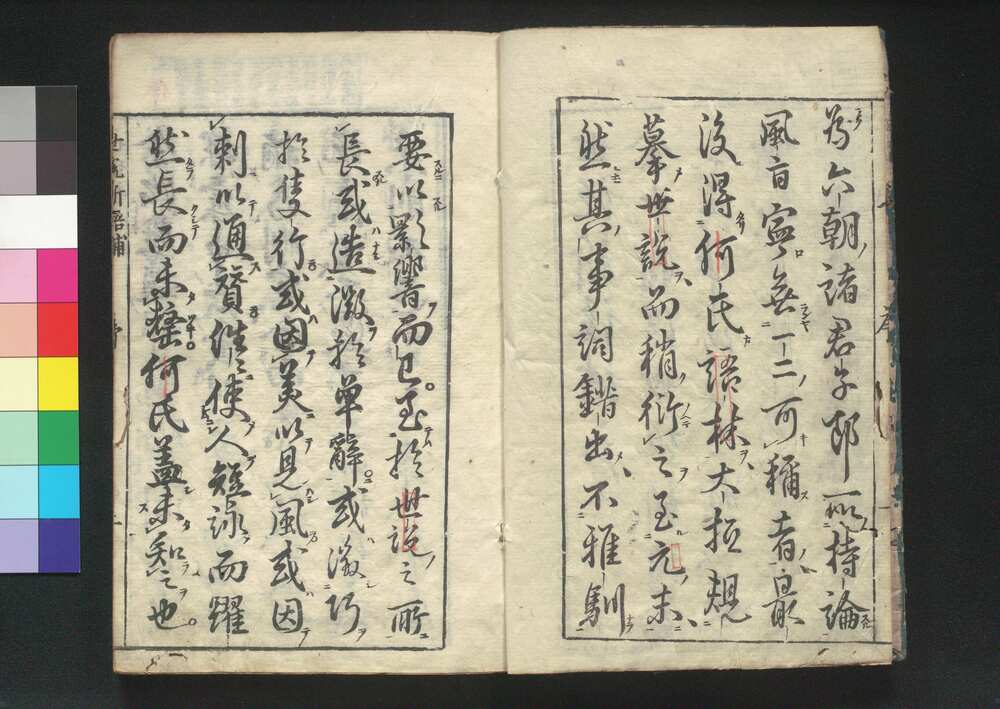 為六朝諸君子即所持論
風旨寧無一二可稱者最
後得何氏語林大抵規
摹世說而稍衍之至元末
然其事詞錯出不雅馴
要以影響而已至於世說之所
長或造微於單辭或徵巧
於隻行或因美以見風或因
刺以通贊往往使人短詠而躍
然長思而未罄何氏蓋未之知也
世說新語補
序